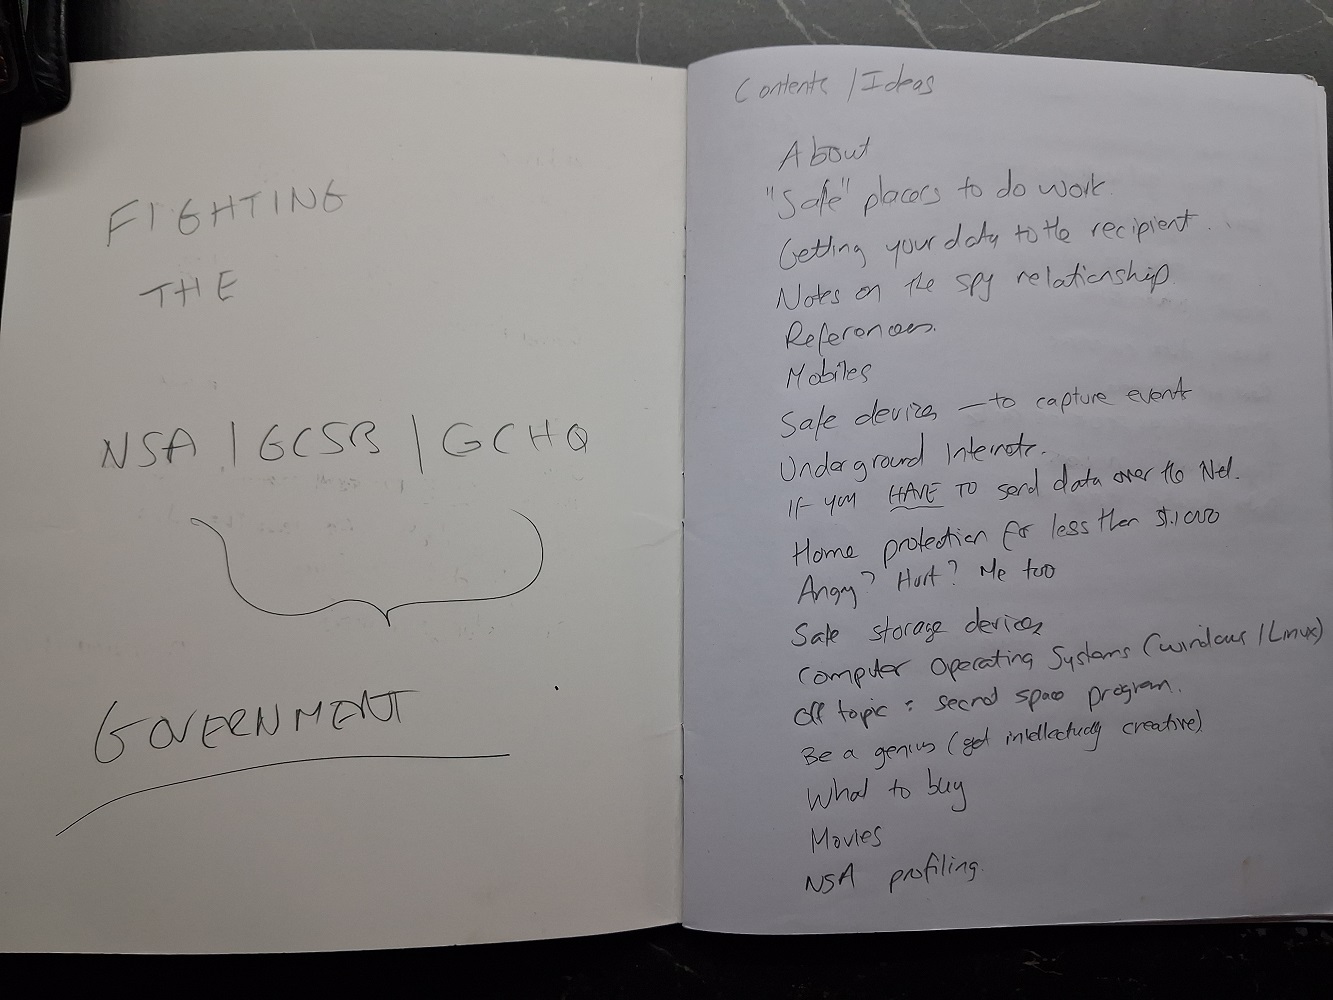 FIGHTING
THE
NSA | GCSB | GCHQ
GOVERNMENT
Contents / Ideas
About
"Safe" places to do work.
Getting your data to the recipient...
Notes on the spy relationship
References.
Mobiles
Safe devices — to capture events
Underground Internets.
If you HAVE TO send data over the Net.
Home protection for less than $1,000
Angry? Hurt? Me too
Safe storage devices
Computer Operating Systems (windows / Linux)
Off topic: secret space program.
Be a genius (get intellectually creative)
What to buy
Movies
NSA profiling.